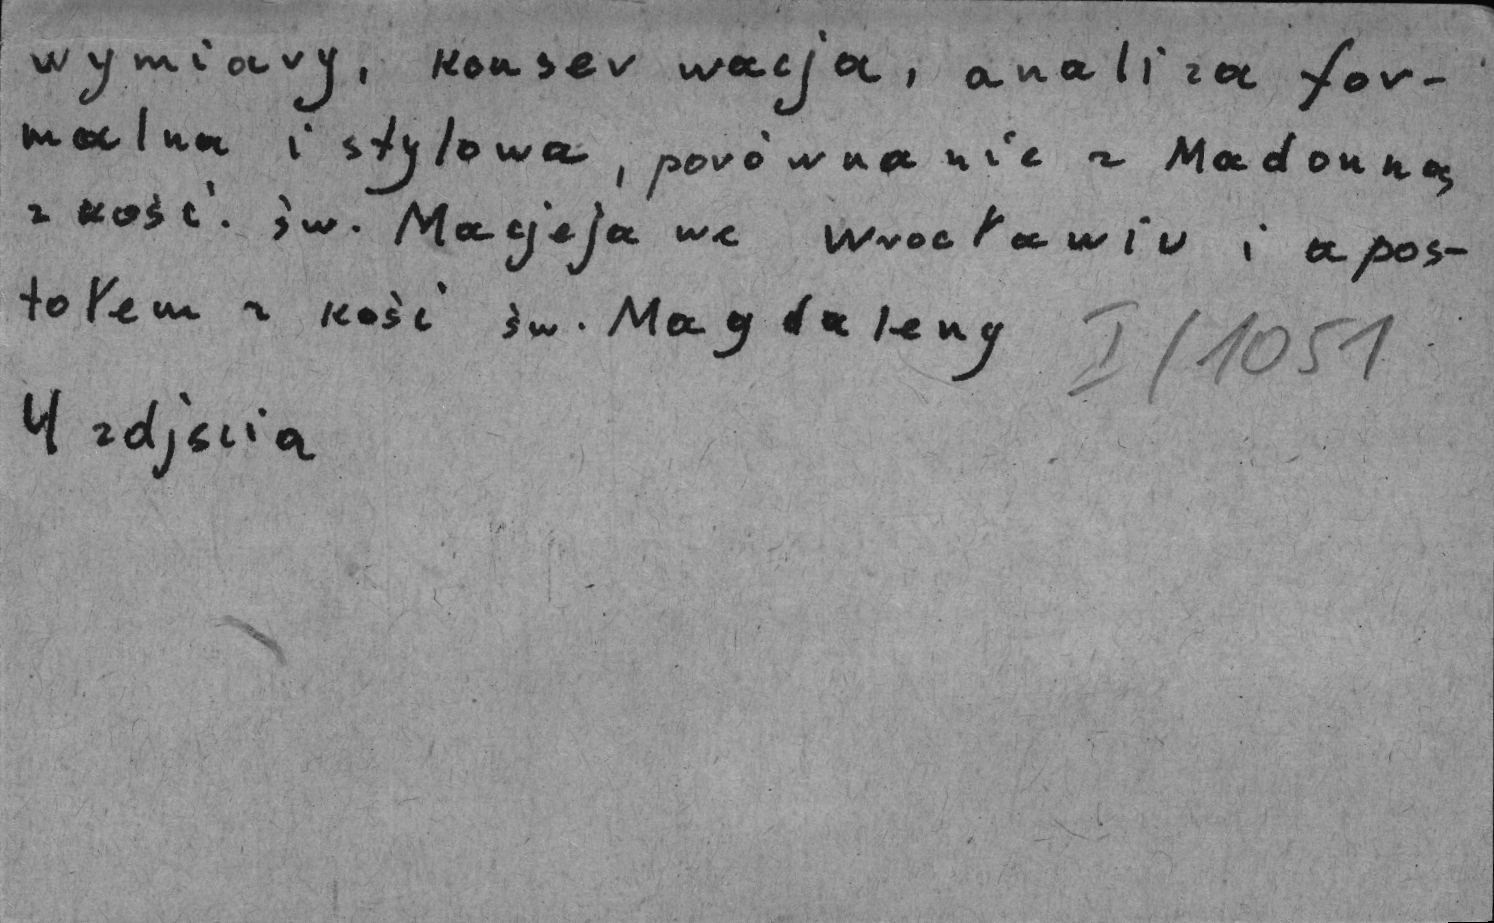 wymiary, konserwacja, analiza for-
malna i stylowa, porównanie z Madonną
z kość. św. Macjeja we Wrocławiu i apos-
tołem z kość św. Magdaleny I/1051
4 zdjścia